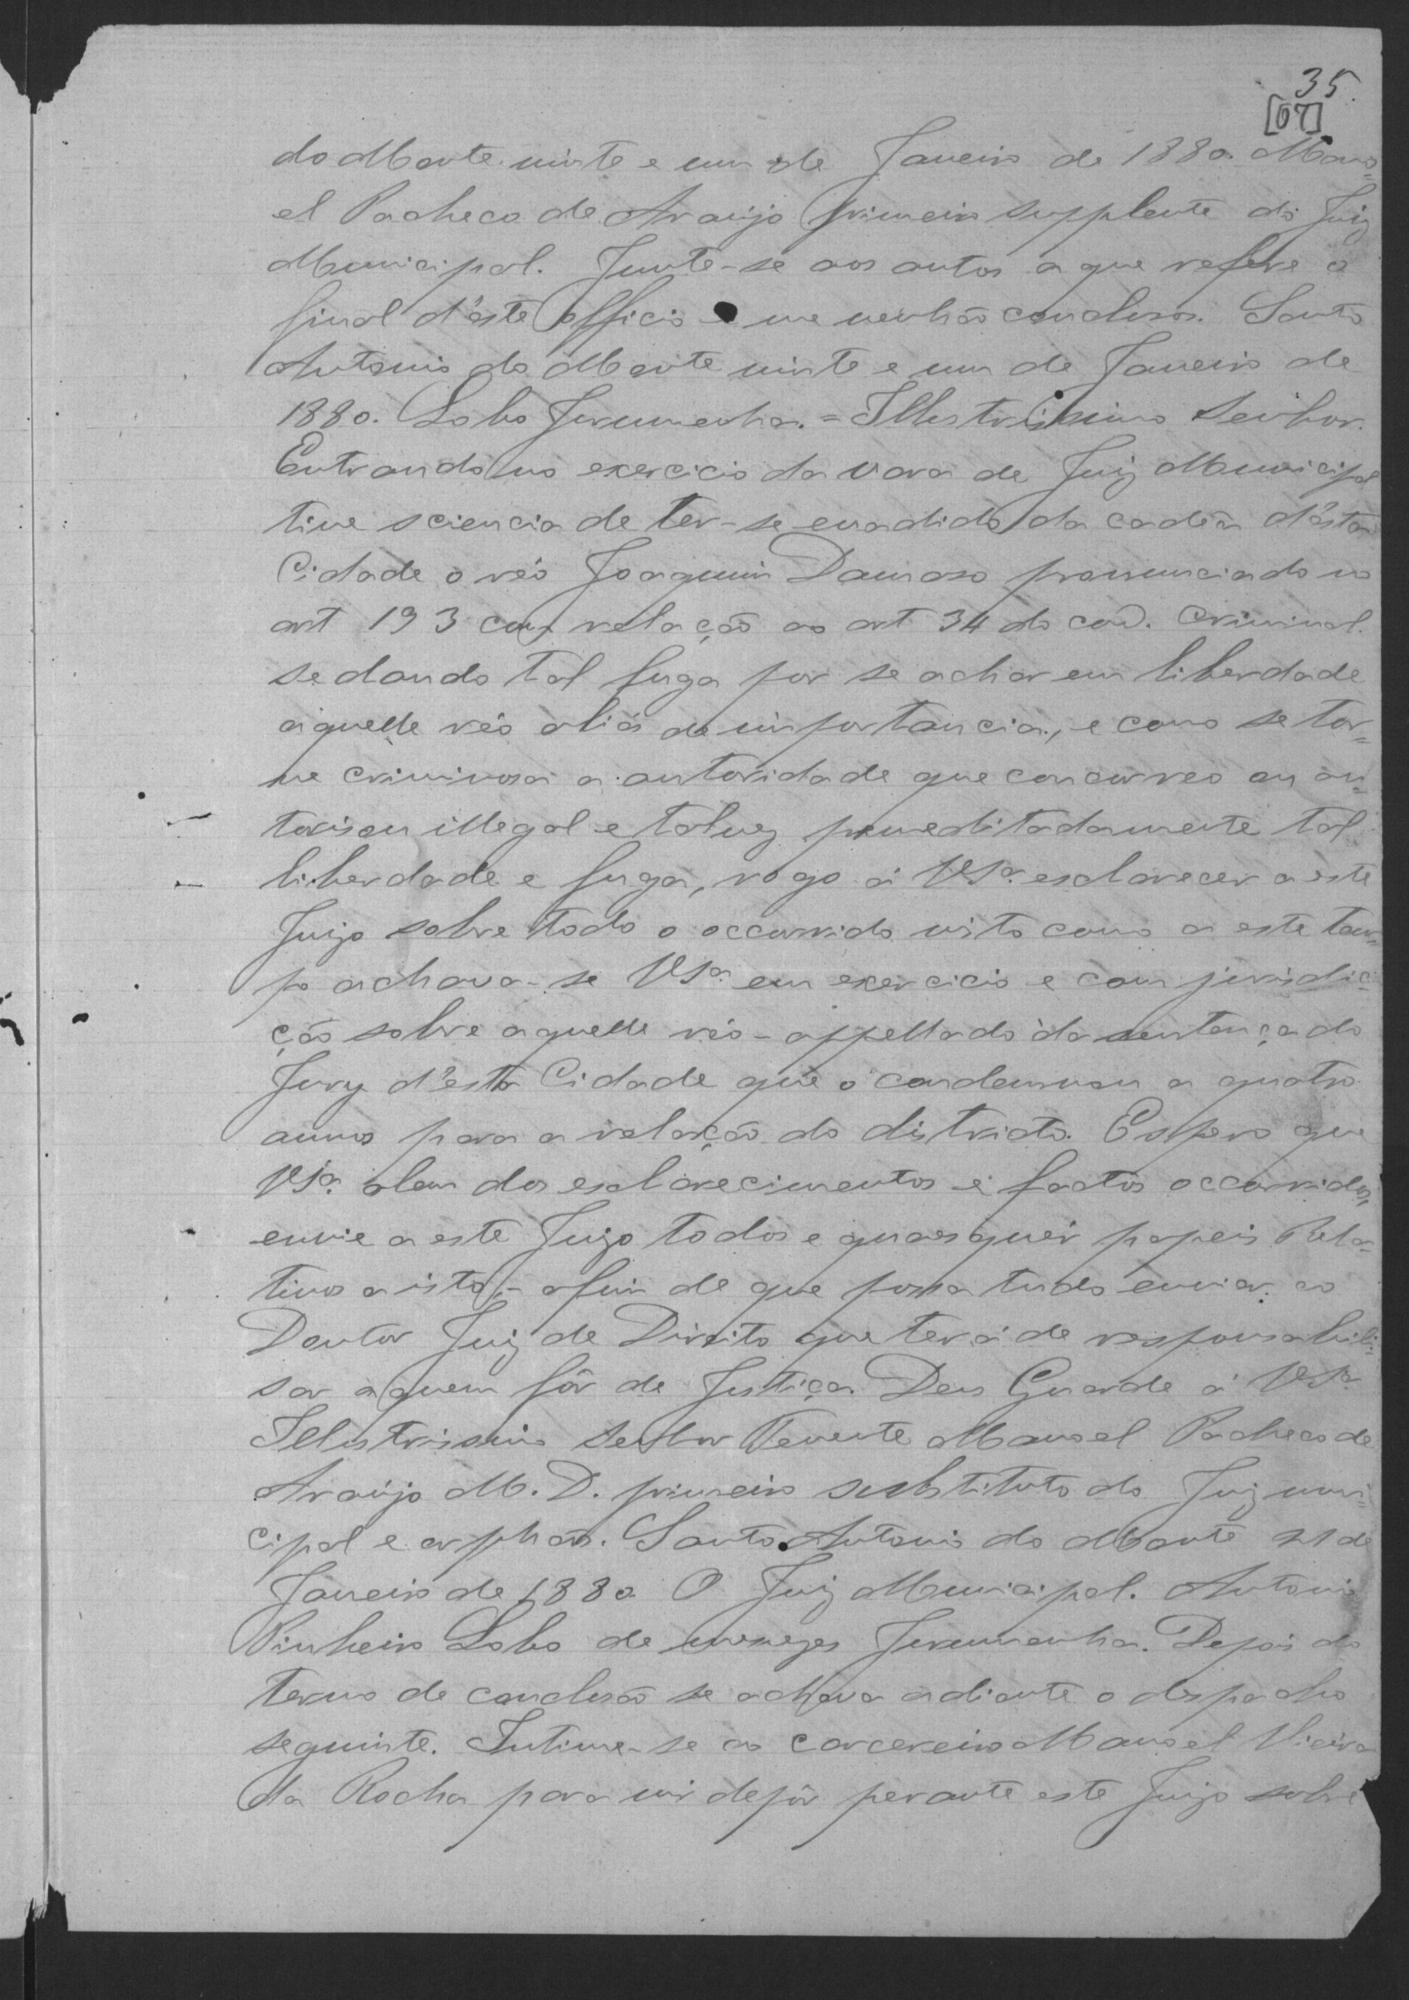 35
[07]
do Monte vinte e um de Janeiro de 1880. Mano=
el Pacheco de Araujo primeiro supplente do Juiz
Municipal. Junte-se aos autos a que refere o
final d'este officio e me venhão conclusos. Santo
Antonio do Monte vinte e um de Janeiro de
1880. Lobo Jurumenha. = Illustrissimo Senhor.
Entrando no exercicio da vara de Juiz Municipal
tive sciencia de ter-se evadido da cadêa d'esta
Cidade o réo Joaquim Damaso pronunciado no
art 193 com relação ao art 34 do cod. Criminal.
se dando tal fuga por se achar em liberdade
aquelle réo aliás de importancia, e como se tor=
ne criminosa a autoridade que concorreo ou au=
torisou illegal e talvez premeditadamente tal
liberdade e fuga, rogo á VSª esclarecer a este
Juizo sobre todo o occorrido visto como a este tem=
po achava-se VSª em exercicio e com jurisdic=
ção sobre aquelle réo - appellado da sentença do
Jury d'esta Cidade que o condemnou a quatro
annos para a relação do districto. Espero que
VSª alem dos esclarecimentos e factos occorridos,
envie a este Juizo todos e quaesquér papeis Rela=
tivos a isto, - afim de que possa tudo enviar ao
Doutor Juiz de Direito que terá de responsabili=
sar a quem fôr de Justiça. Deus Guarde á VSª
Illustrissimo Senhor Tenente Manoel Pacheco de
Araujo M. D. primeiro substituto do Juiz muni=
cipal e orphãos. Santo Antonio do Monte 21 de
Janeiro de 1880. O Juiz Municipal. Antonio
Pinheiro Lobo de menezes Jurumenha. Depois do
termo de conclusão se achava adiante o despacho
seguinte. Intime-se ao carcereiro Manoel Vieira
da Rocha para vir depôr perante este Juizo sobre